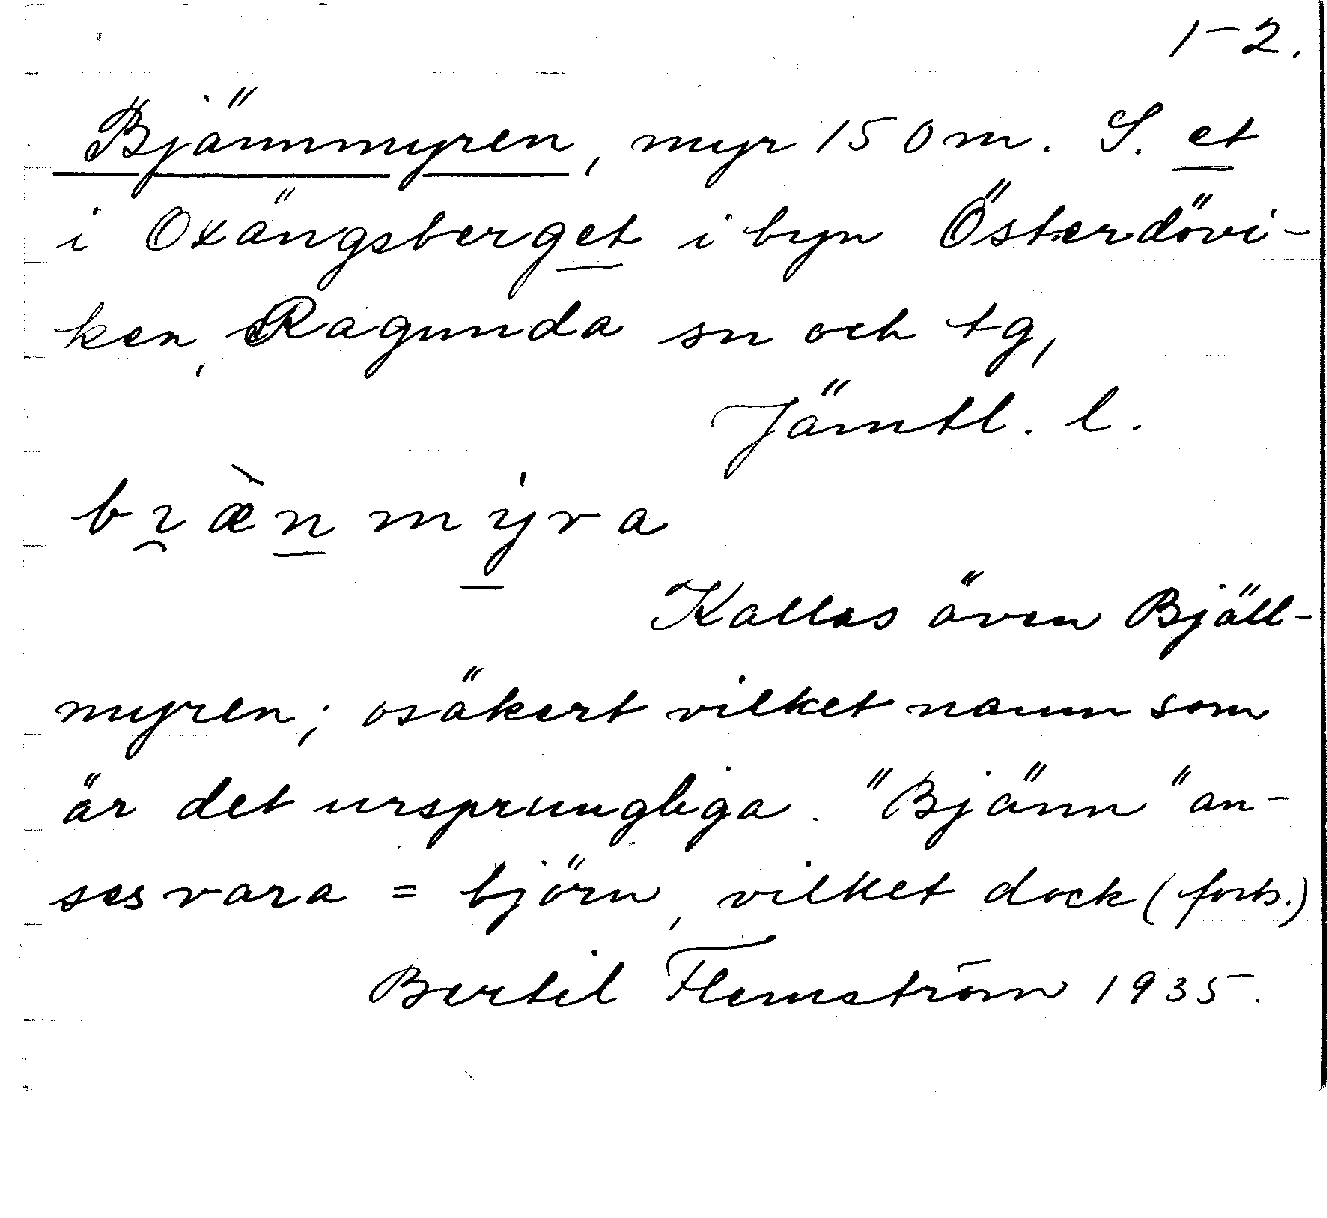 1-2.
Bjännmyren, myr 150 m. S. et
i Oxängsberget i byn Österdövi-
ken, Ragunda sn och tg,
Jämtl. l.
Kallas även Bjäll-
myren; osäkert vilket namn som
är det ursprungliga. "Bjänn" an-
ses vara = björn, vilket dock (forts.)
Bertil Flemström 1935.